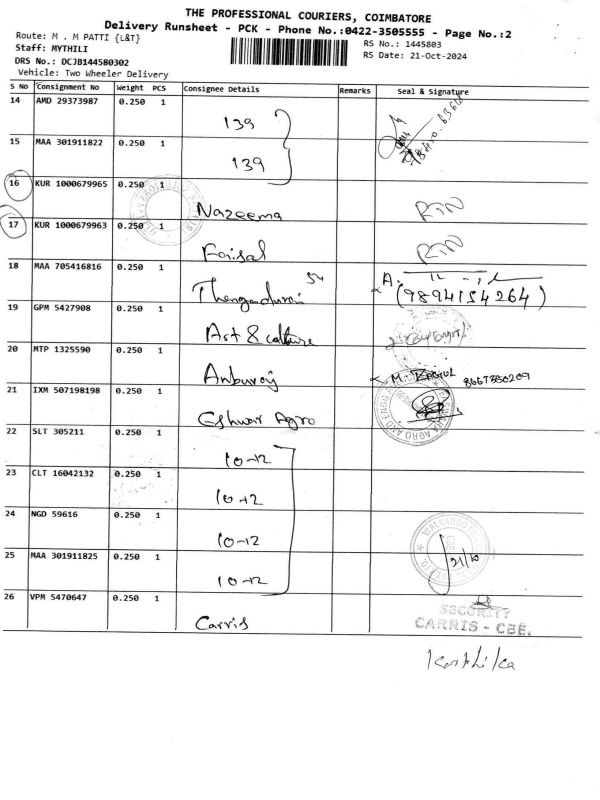 THE PROFESSIONAL COURIERS, COIMBATORE
Delivery Runsheet - PCK - Phone No.:0422-3505555 - Page No.:2
Route: M . M PATTI {L&T}
RS No.: 1445803
Staff: MYTHILI
RS Date: 21-Oct-2024
DRS No.: DCJB144580302
Vehicle: Two Wheeler Delivery
S No Consignment No Weight PCS Consignee Details Remarks Seal & Signature
14 AMD 29373987 0.250 1
139
15 MAA 301911822 0.250 1
139
16 KUR 1000679965 0.250 1
Nazeema
17 KUR 1000679963 0.250 1
Faisal
18 MAA 705416816 0.250 1
54
(9894154264)
19 GPM 5427908 0.250 1
Art & culture
20 MTP 1325590 0.250 1
Anburaj
M.
21 IXM 507198198 0.250 1
Eshwar Agro
AGRO AND ENGG
22 SLT 305211 0.250 1
10-12
23 CLT 16042132 0.250 1
10-12
24 NGD 59616 0.250 1
10-12
25 MAA 301911825 0.250 1
10-12
21/10
26 VPM 5470647 0.250 1
Carris
SECURITY
CARRIS - CBE.
Karthika